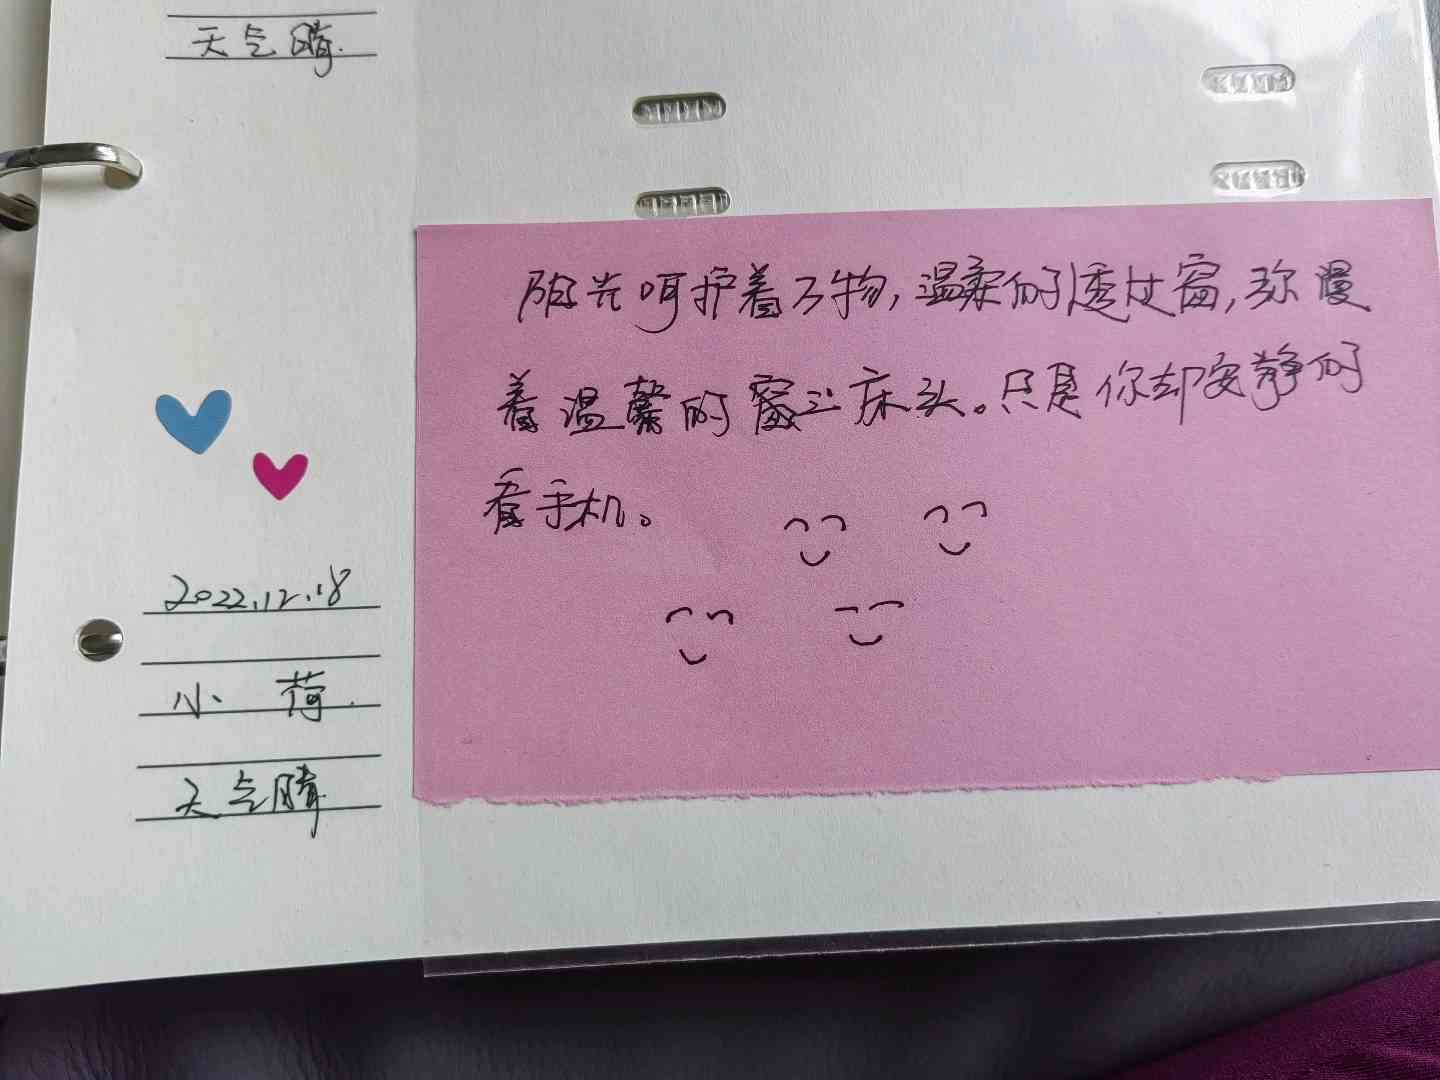 天气晴.
阳光呵护着万物,温柔的透过窗,弥漫
着温馨的窗上床头。只是你却安静的
看手机。
2022.12.18
小荷.
天气晴